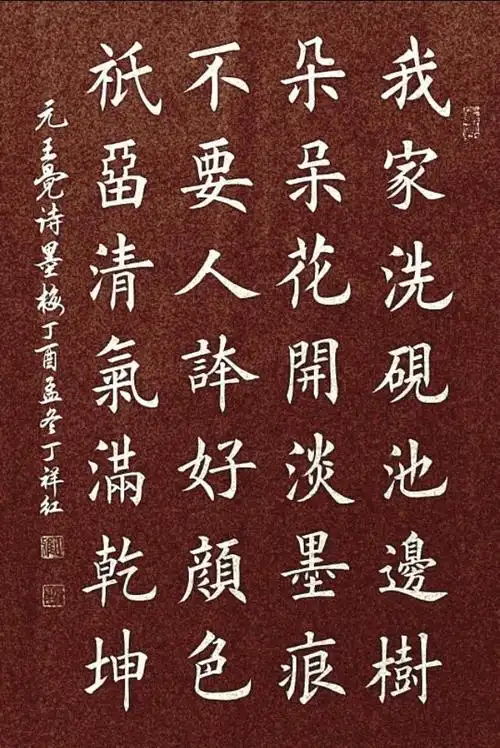 我家洗硯池邊樹
朵朵花開淡墨痕
不要人誇好顔色
祇畱清氣滿乾坤
元王冕诗墨梅丁酉孟冬丁祥红